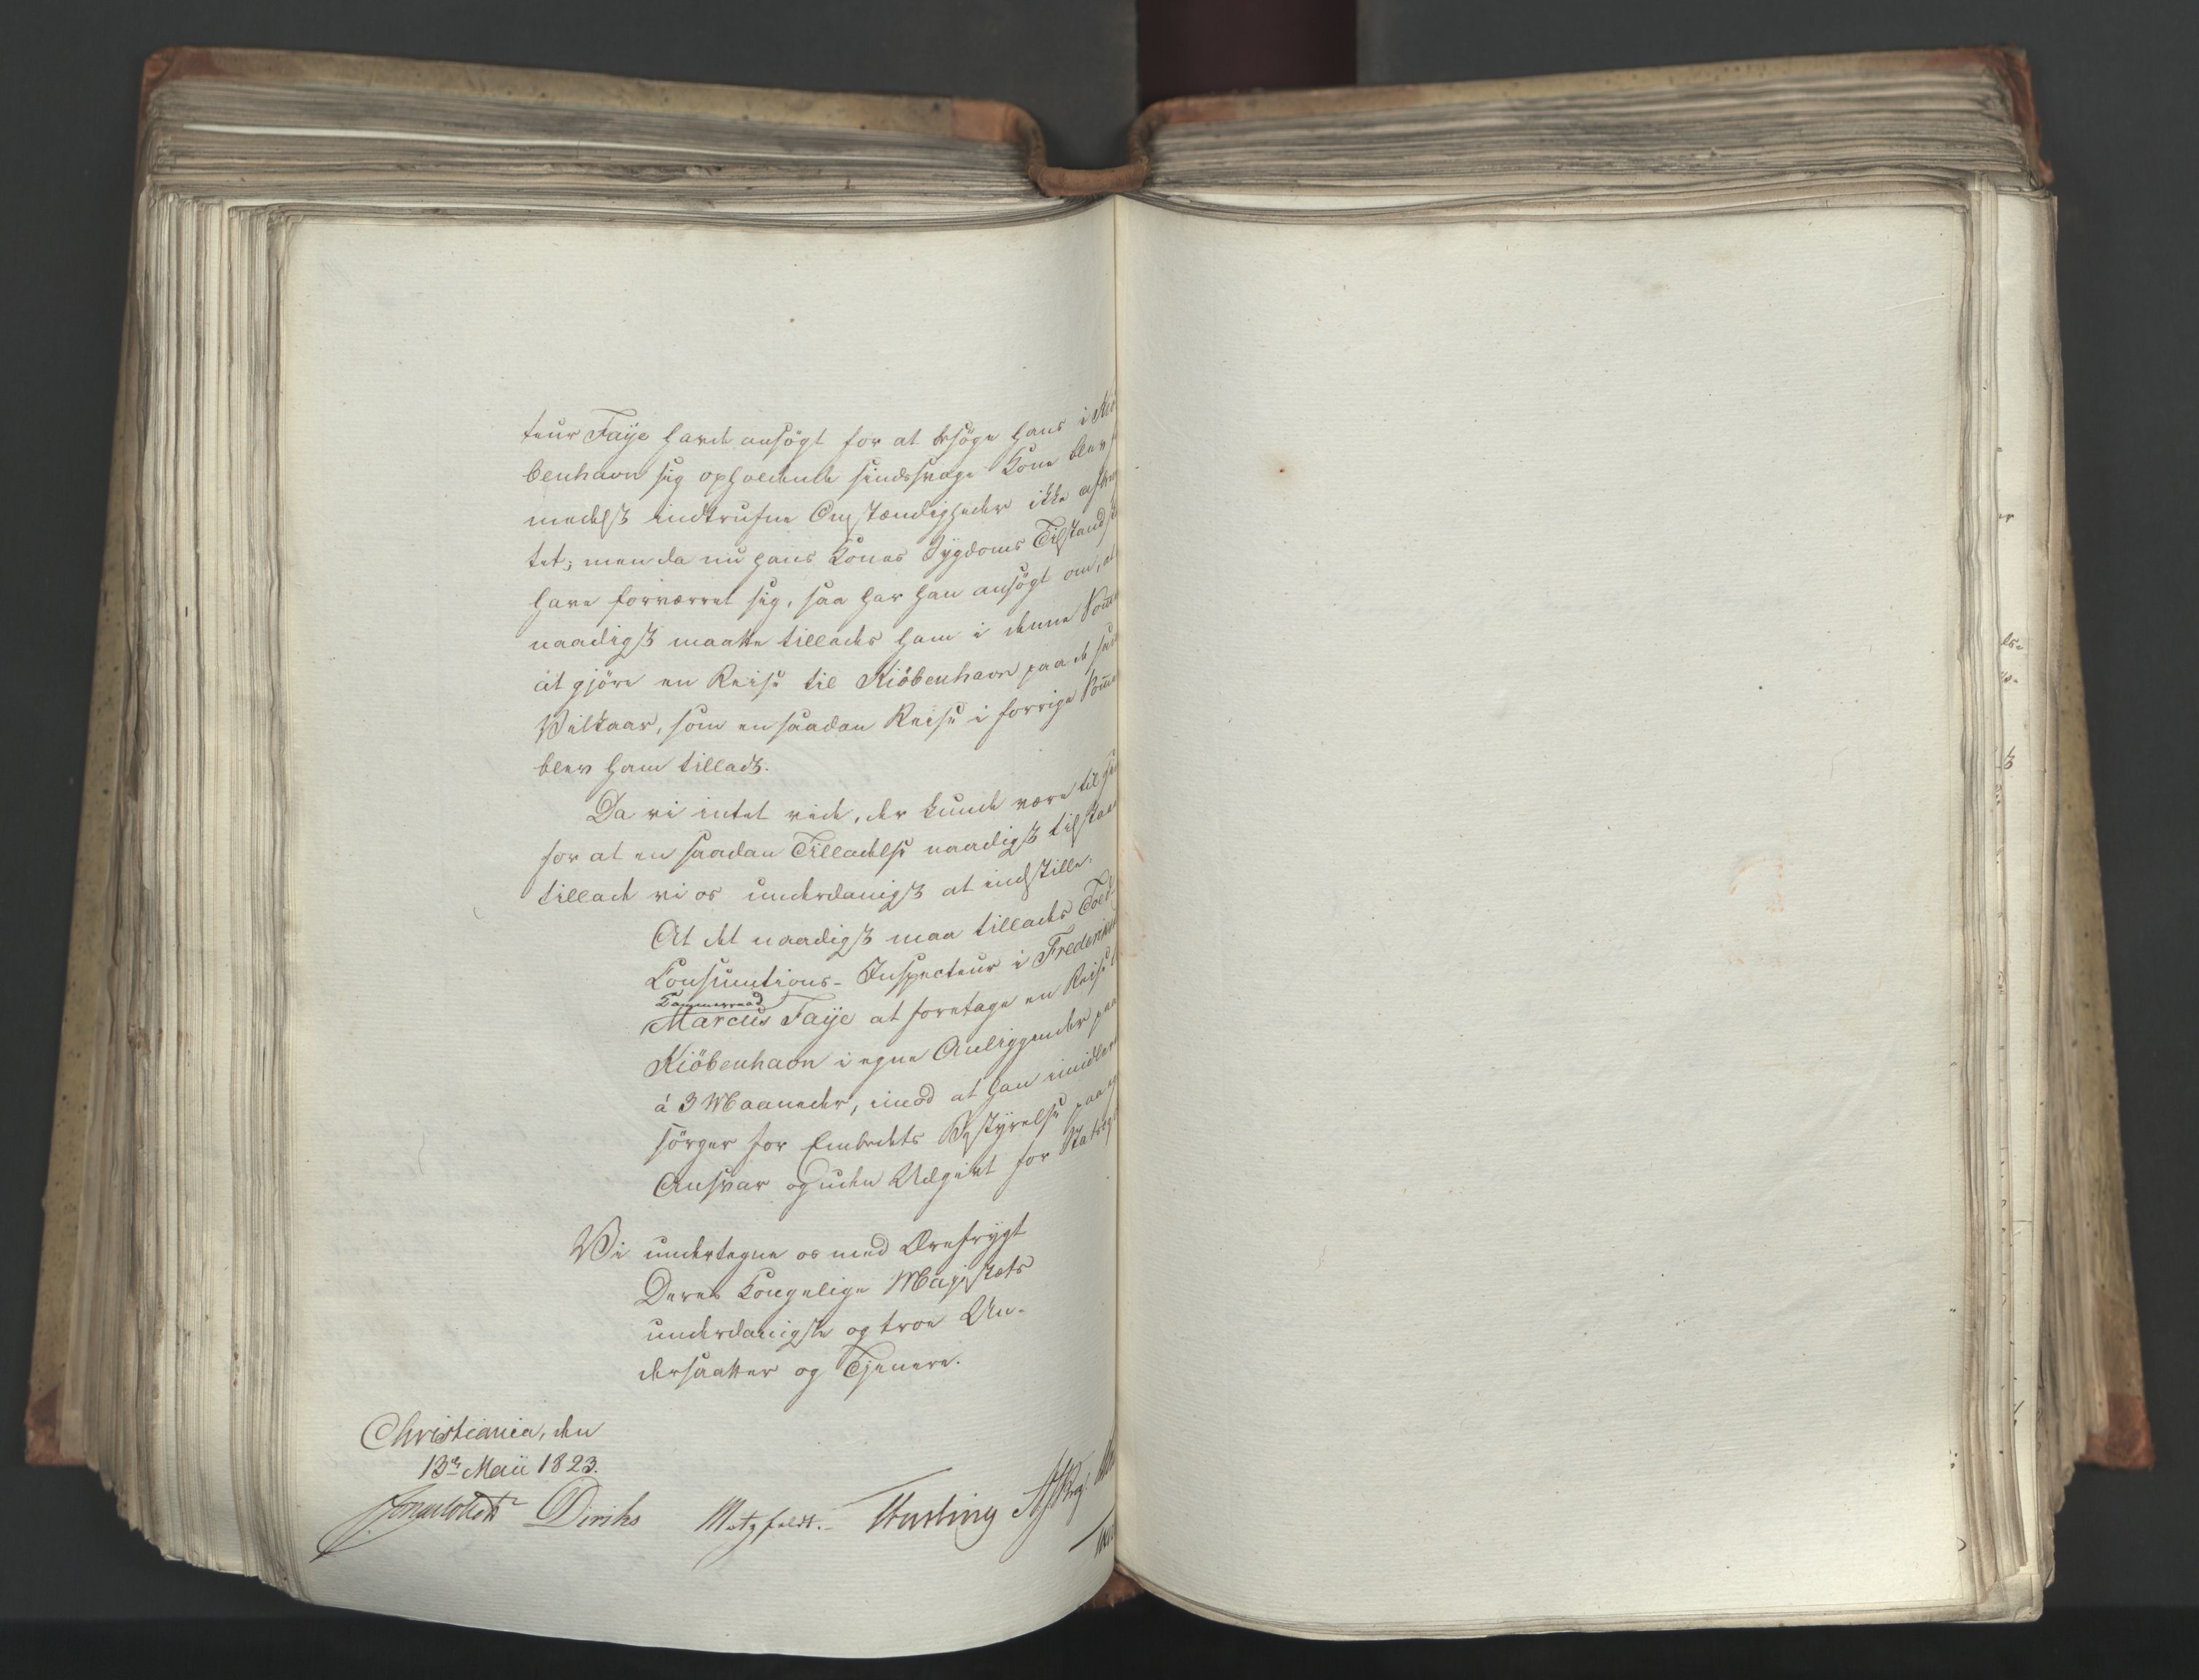 teur Faÿe havde ansögt for at besöge hans i Kiö
benhavn sig opholdende sindssvage Kone blev
medelst indtrufne Omstændigheder ikke
tet; men da nu hans Kones Sÿgdoms Tilstand
have forværret sig, saa har han ansögt om, at
naadigst maatte tillades ham i denne Somm
at gjöre en Reise til Kiöbenhavn paa de sam
Vilkaar, som en saadan Reise i forrige Somm
blev ham tilladt.
Da vi intet vide, der kunde være til
for at en saadan Tilladelse naadigst tilstaa
tillade vi os underdanigst at indstille:
At det naadigst maa tillades Told
Consumtions-Inspecteur i Frederik
Kammerraad
Marcus Faÿe at foretage en Reise
Kiöbenhavn i egne Anliggender paa
á 3 Maaneder, imod at han imidler
sörger for Embedets Bestÿrelse paa
Ansvar og uden Udgivt for Stats
Vi undertegne os med Ærefrÿgt
Deres Kongelige Majestæts
underdanigste og troe Un-
dersaatter og Tjenere.
Christiania, den
13de Maii 1823.
Diriks Motzfeldt.